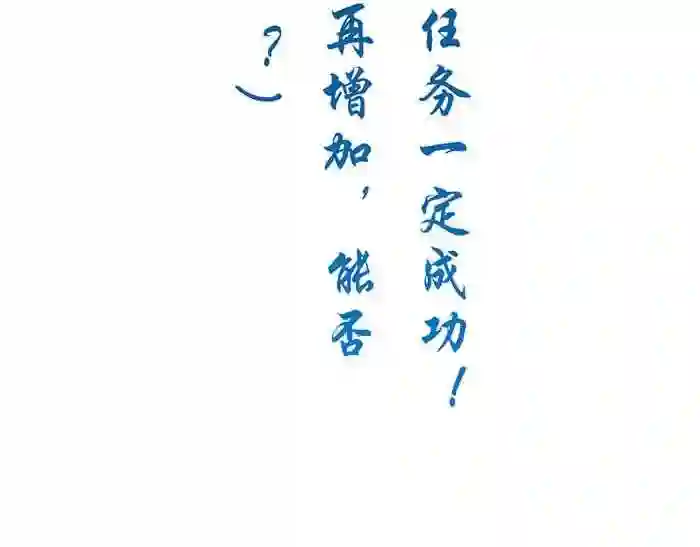 任务一定成功！
再增加，能否
？）